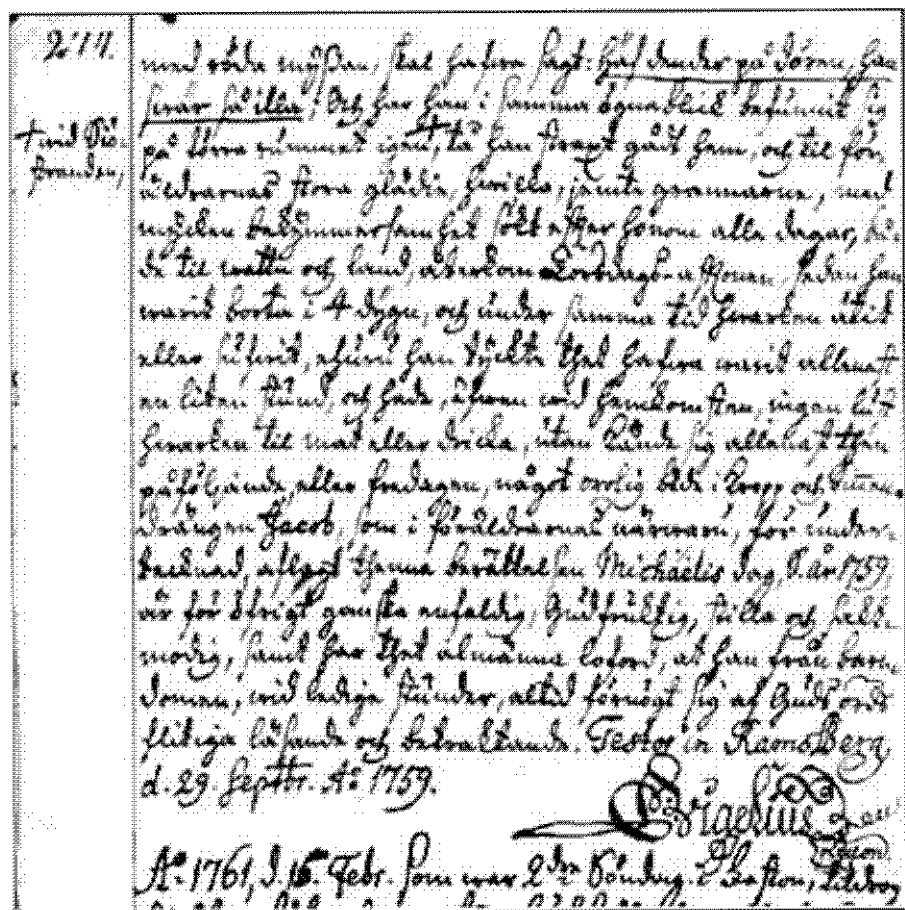 244.
med röda myssan, skal hafva sagt: haf dender på dören, han
svär så illa; Och har han i samma ögnablick befunnit sig
† vid Siö-
stranden,
på torra rummet igen, † tå han straxt gådt hem, och til för-
äldrarnas stora glädie, hvilka, jemte grannarne, med
mycken bekymmersamhet sökt efter honom alla dagar, bå-
de til watn och land, återkom Torsdags-aftonen, sedan han
warit borta i 4 dygn, och under samma tid hvarken ätit
eller sufvit, ehuru han tyckte thet hafva warit allenast
en liten stund, och hade, äfven wid hemkomsten, ingen lust
hvarken til mat eller dricka, utan kände sig allenast then
påföljande, eller fredagen, något orolig både i kropp och sinne.
Drängen Jacob, som i föräldrarnas närwaru, för under-
tecknad, aflagt thenna berättelsen Michaelis dag, d. år 1759,
är för öfrigt ganska enfaldig, Gudfruktig, stilla och sakt-
modig, samt har thet almänna loford, at han från barn-
domen, wid lediga stunder, altid förnögt sig af Guds ords
flitiga läsande och betraktande. Testor in Ramsberg,
d. 29. Septbr. A:o 1759.
Brigelius
A:o 1761, d. 15. Febr. som war 2:dra Söndag. i Faston, tildrog